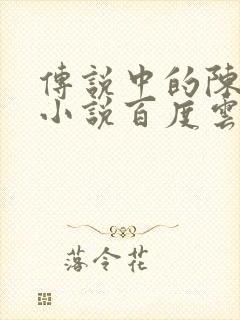 傳說中的陳
小說百度雲
落令花